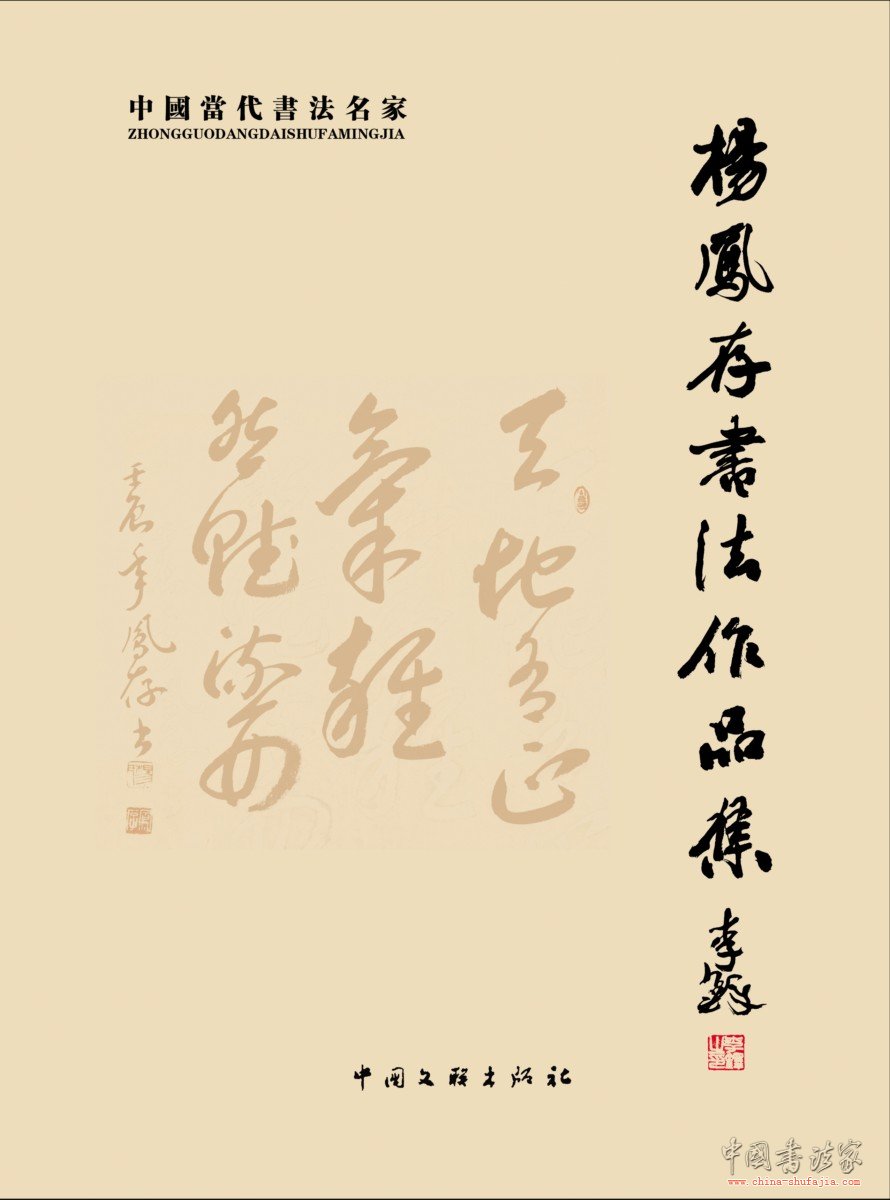 中國當代書法名家
ZHONGGUODANGDAISHUFAMINGJIA
楊鳳存書法作品集
李鐸
天地有正
氣雜
然賦流形
壬辰年鳳存书
中国文联出版社
中國書法家
www.china-shufajia.com